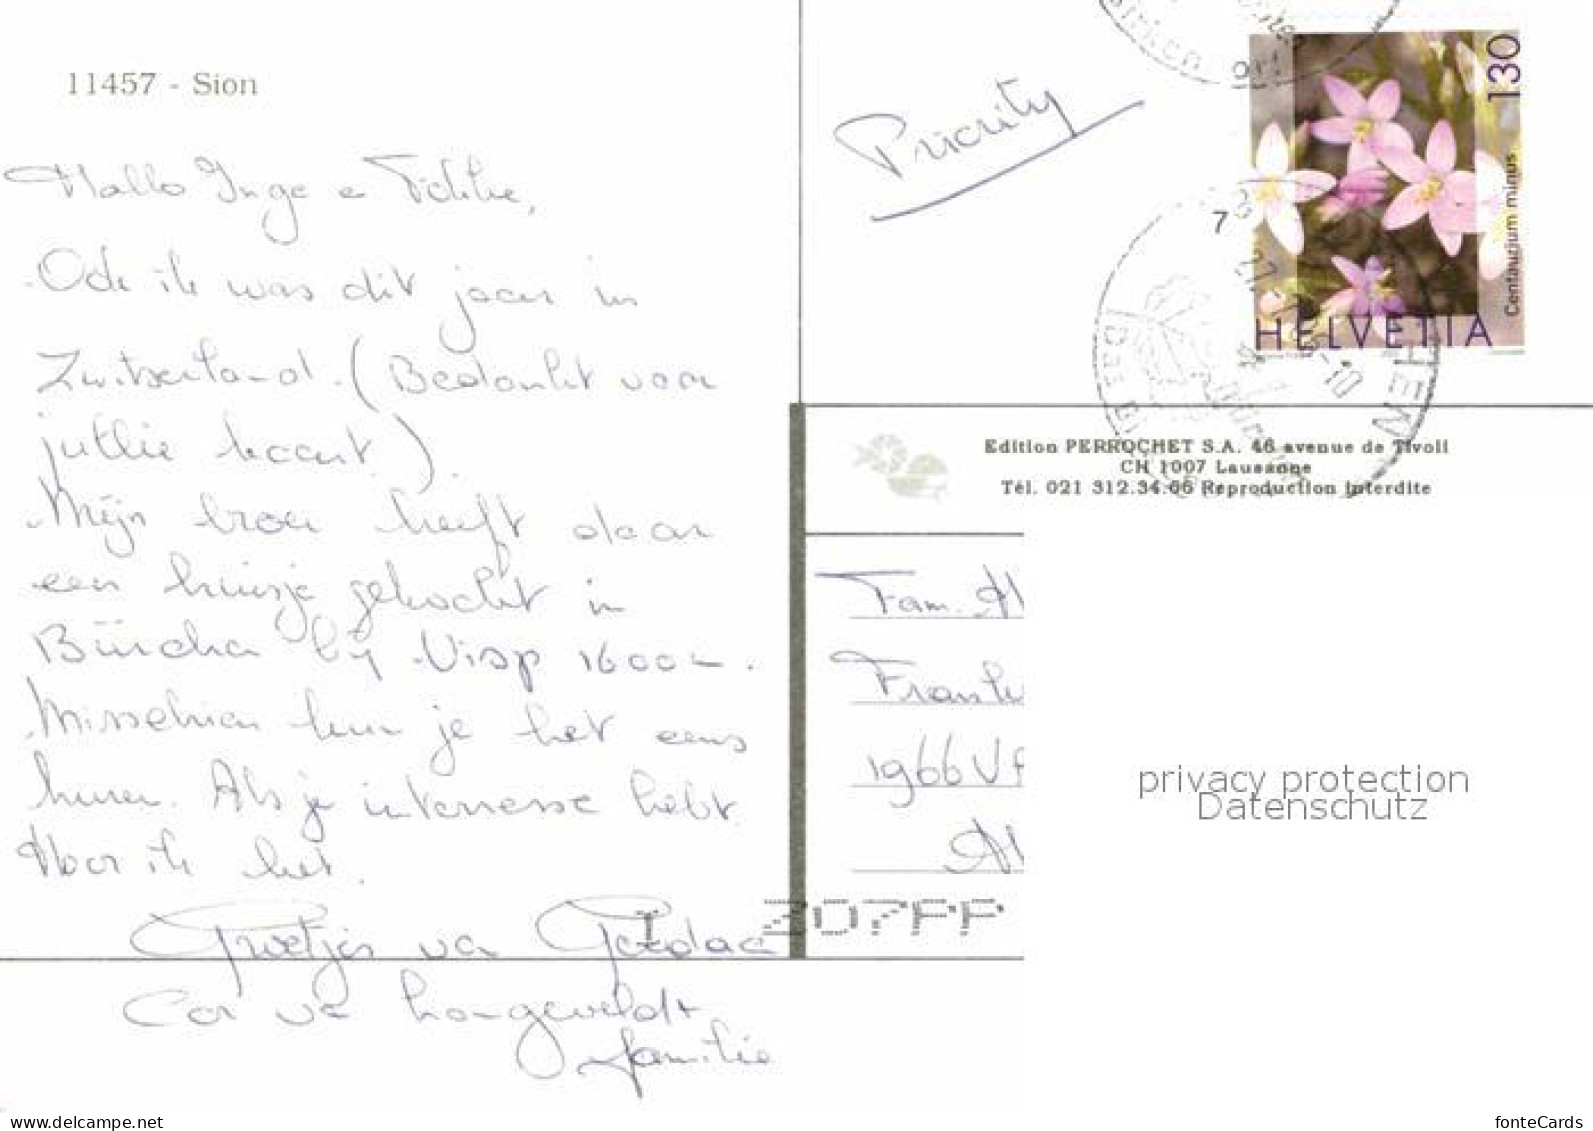 11457 - Sion
Hallo Inge e
Ook ik was dit jaar in
Zwitserland. (Bedankt voor
jullie kaart).
Mijn broer heeft daar
een huisje gekocht in
Bürchen bij Visp 1600m.
Misschien kun je het eens
huren. Als je interresse hebt
Hoor ik het.
Groetjes van
Cor van Langeveldt
familie
Priority
130
Centaurium minus
HELVETIA
7
Edition PERROCHET S.A. 46 avenue de Tivoli
CH 1007 Lausanne
Tél. 021 312.34.66 Reproduction interdite
Fam. H
Frank
1966 V
207PP
privacy protection
Datenschutz
www.delcampe.net
fonteCards